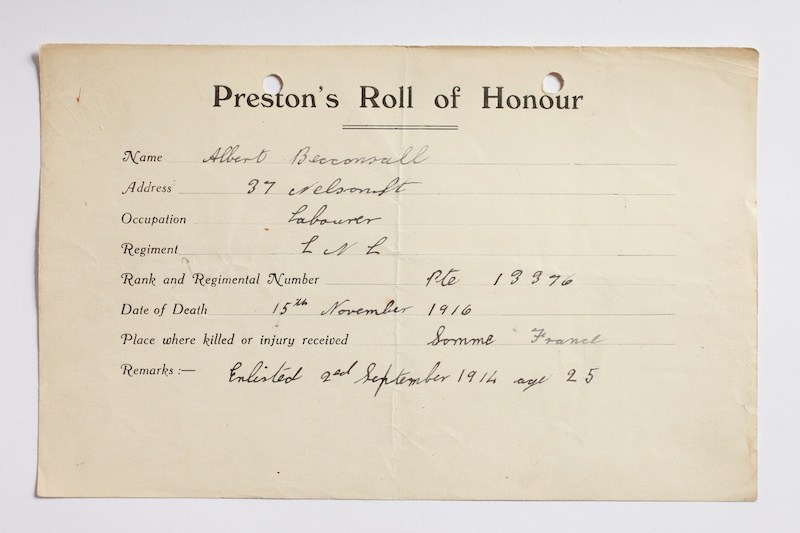 Preston's Roll of Honour
Name Albert Becconsall
Address 37 Nelson St
Occupation Labourer
Regiment L N L
Rank and Regimental Number Pte 13376
Date of Death 15th November 1916
Place where killed or injury received Somme France
Remarks :— Enlisted 2ed September 1914 age 25